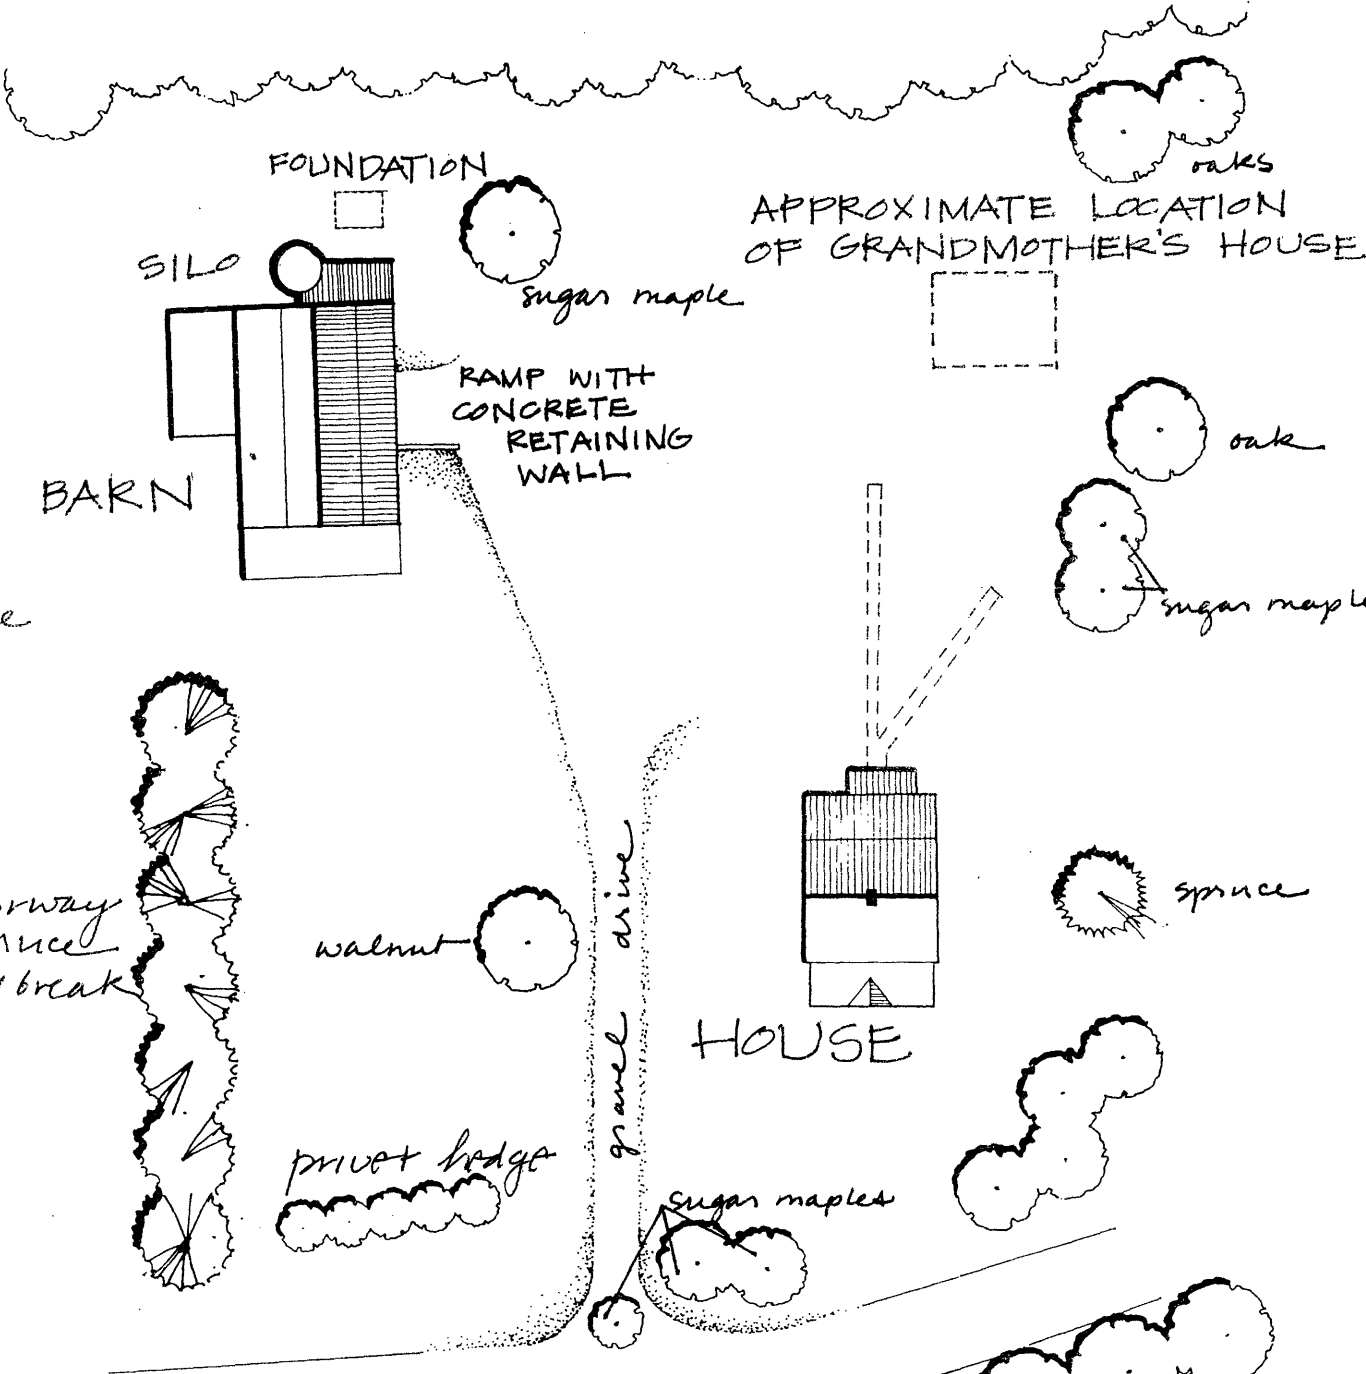 oaks
FOUNDATION
APPROXIMATE LOCATION
OF GRANDMOTHER'S HOUSE
SILO
sugar maple
RAMP WITH
CONCRETE
RETAINING
WALL
oak
BARN
sugar maple
spruce
walnut
break
gravel drive
HOUSE
privet hedge
sugar maples